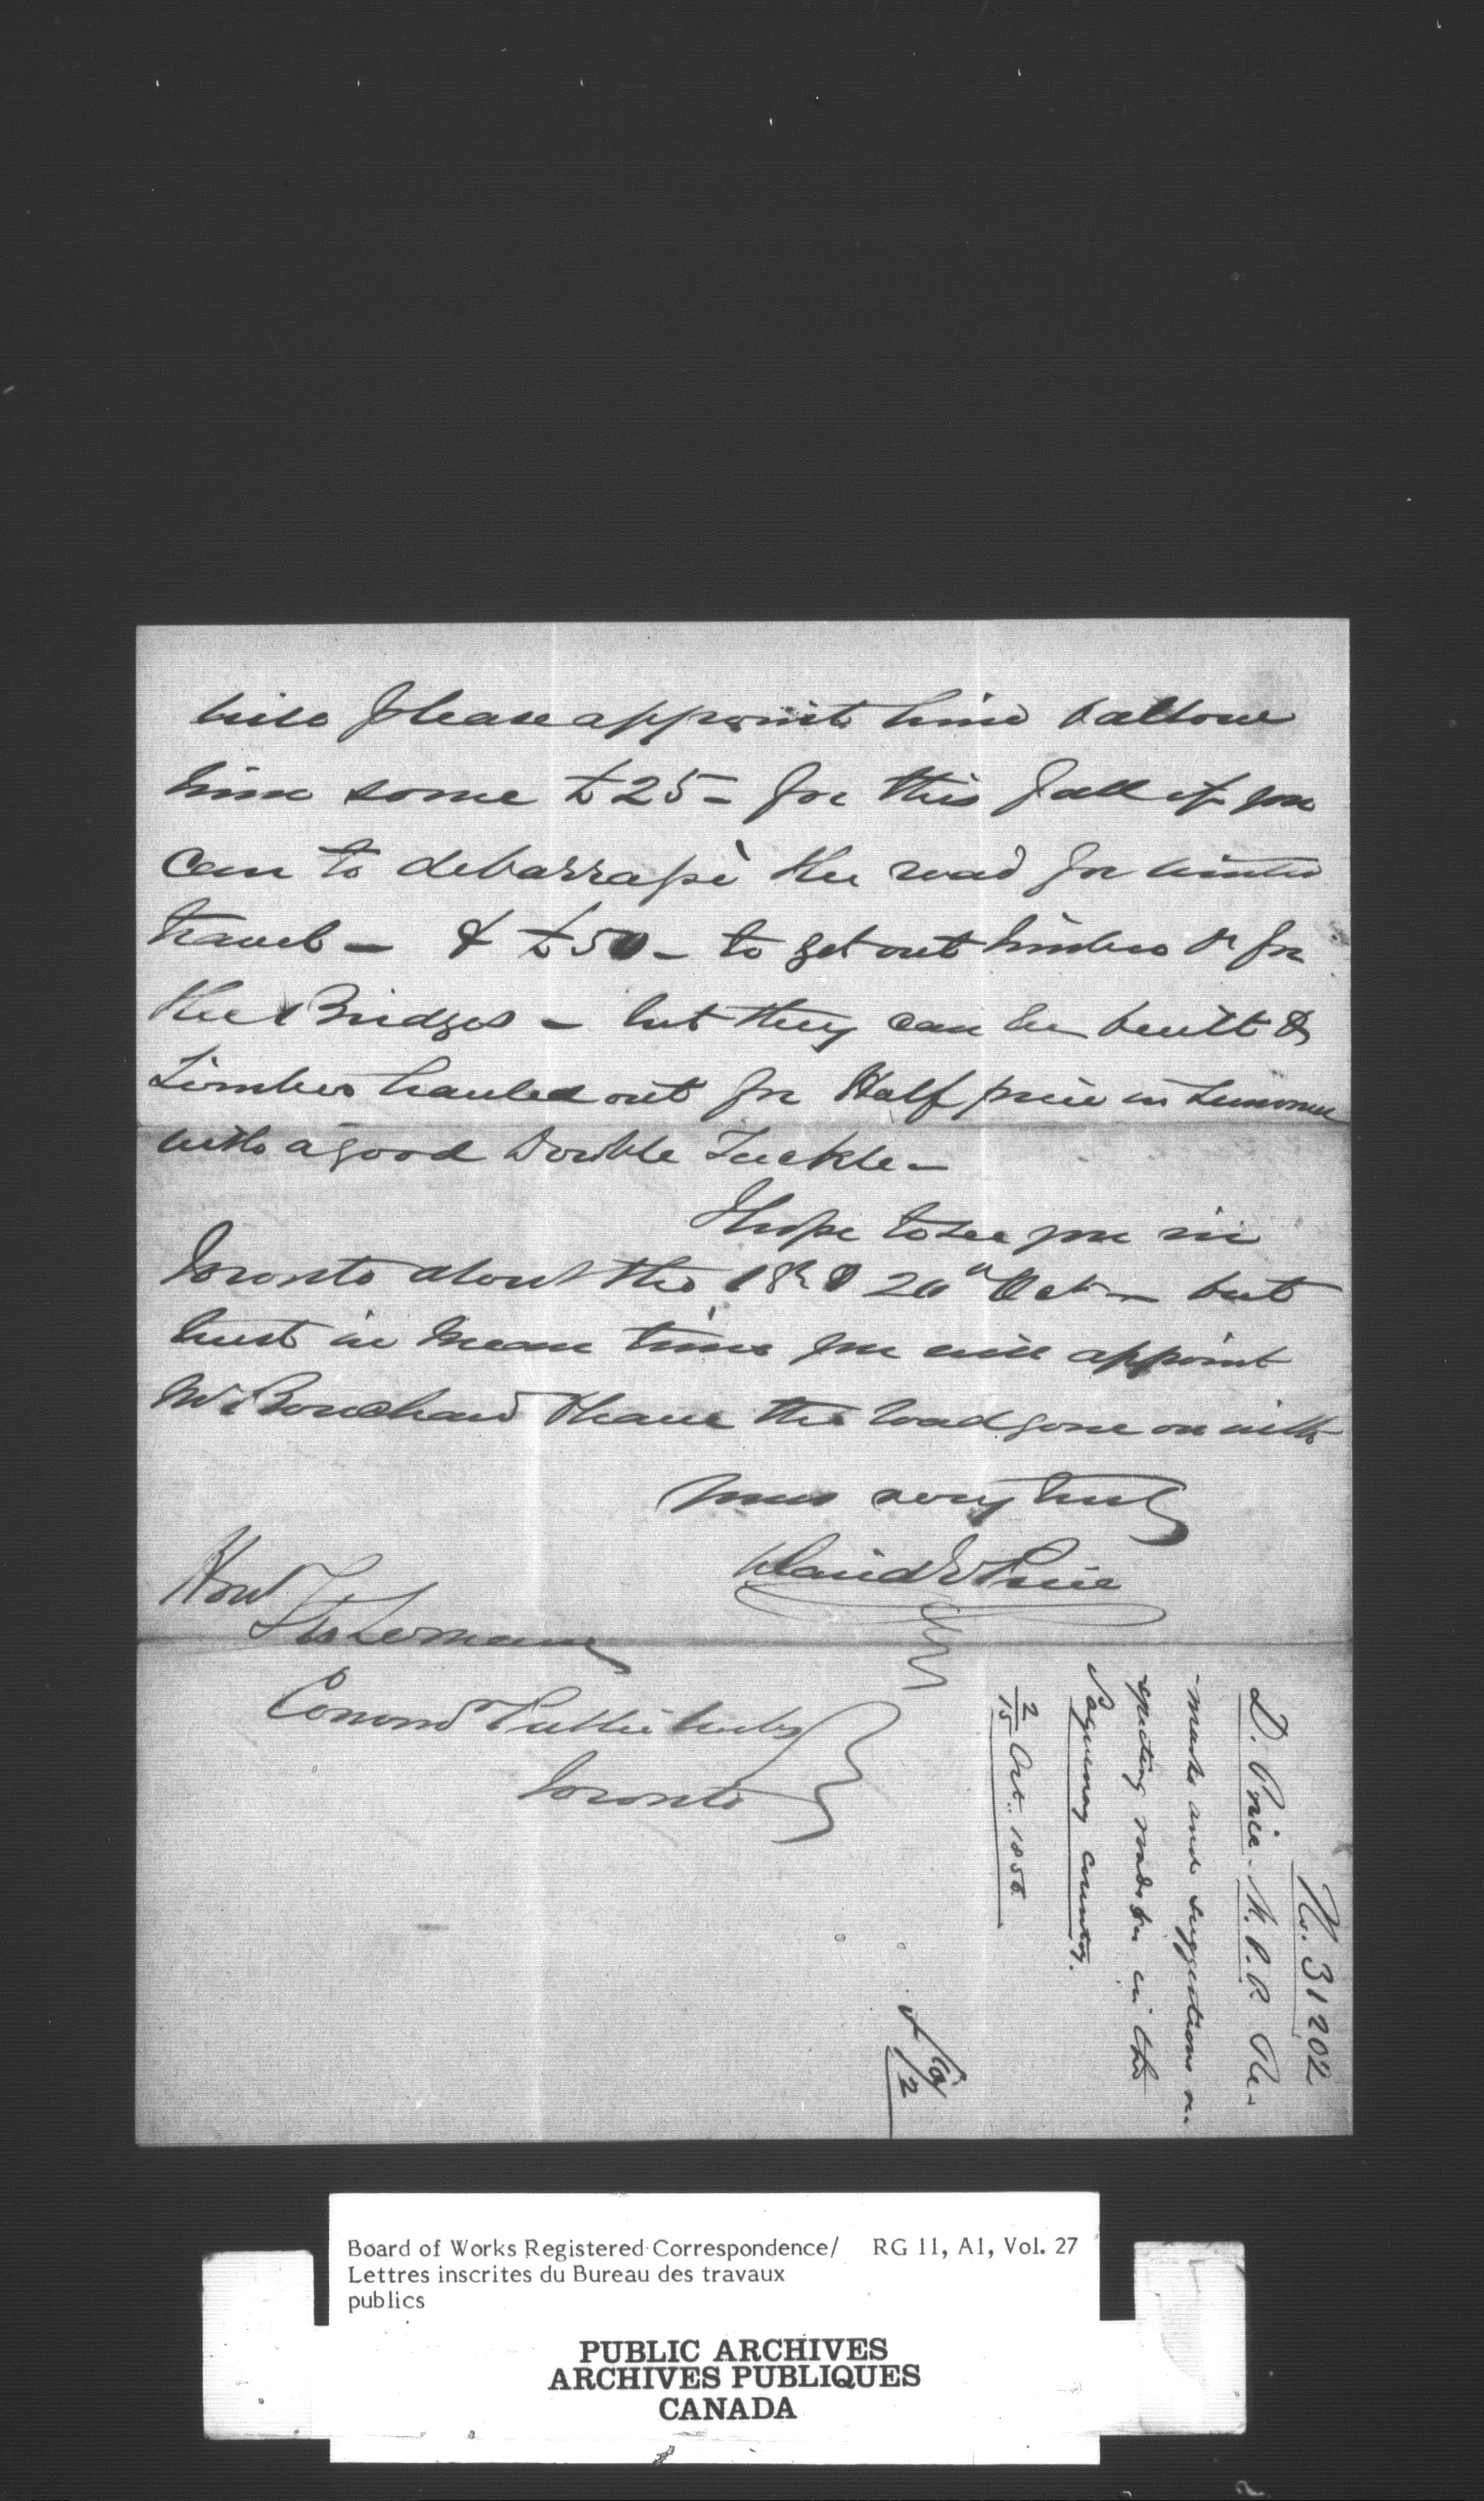 will please appoint him & allow
him some £25 - for this fall if you
can to debarrassé the road for winter
travel - & £50 - to get out timber &c for
the Bridges - but they can be built &
Timber hauled out for Half price in Summer
with a good Double Tackle -
I hope to see you in
Toronto about the 18 & 20th Oct - but
trust in mean time you will appoint
Mr Bouchard & have the road gone on with
Yours very truly
David E Price
Honl
Frs Lemieux
Commr Public Works
Toronto
No. 31202
D. Price. M.P.P. Re-
-marks and suggestions re-
specting roads &c in the
Saguenay country.
2/15 Oct. 1856
Board of Works Registered Correspondence/ RG 11, A1, Vol. 27
Lettres inscrites du Bureau des travaux
publics
PUBLIC ARCHIVES
ARCHIVES PUBLIQUES
CANADA